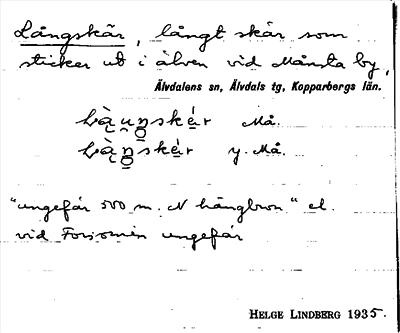 Långskär, långt skär som
sticker ut i älven vid Månsta by,
Älvdalens sn, Älvdals tg, Kopparbergs län.
Må.
y. Må.
"ungefär 500 m. N hängbron" el.
vid Forsomin ungefär
HELGE LINDBERG 1935.